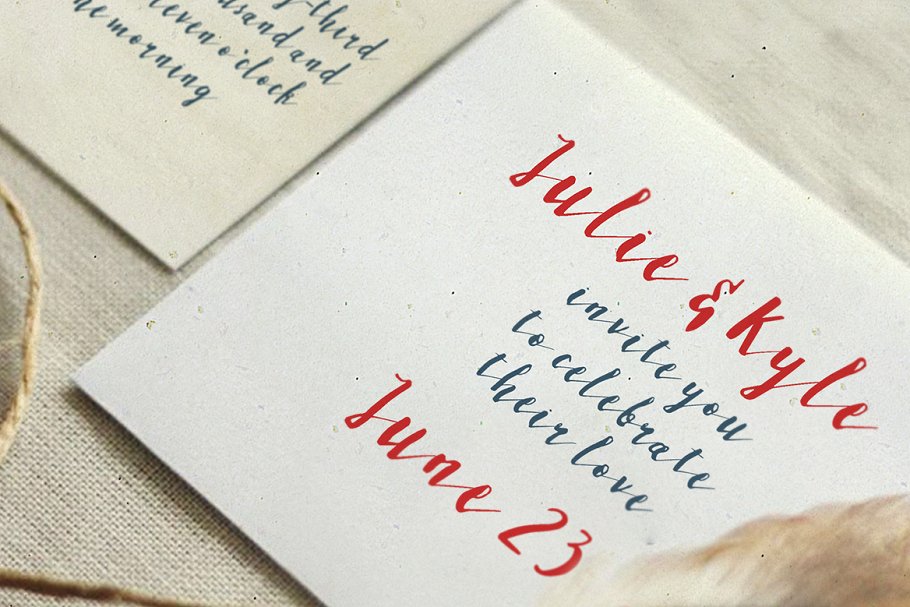 -third
and
eleven o'clock
morning
Julie & Kyle
invite you
to celebrate
their love
June 23